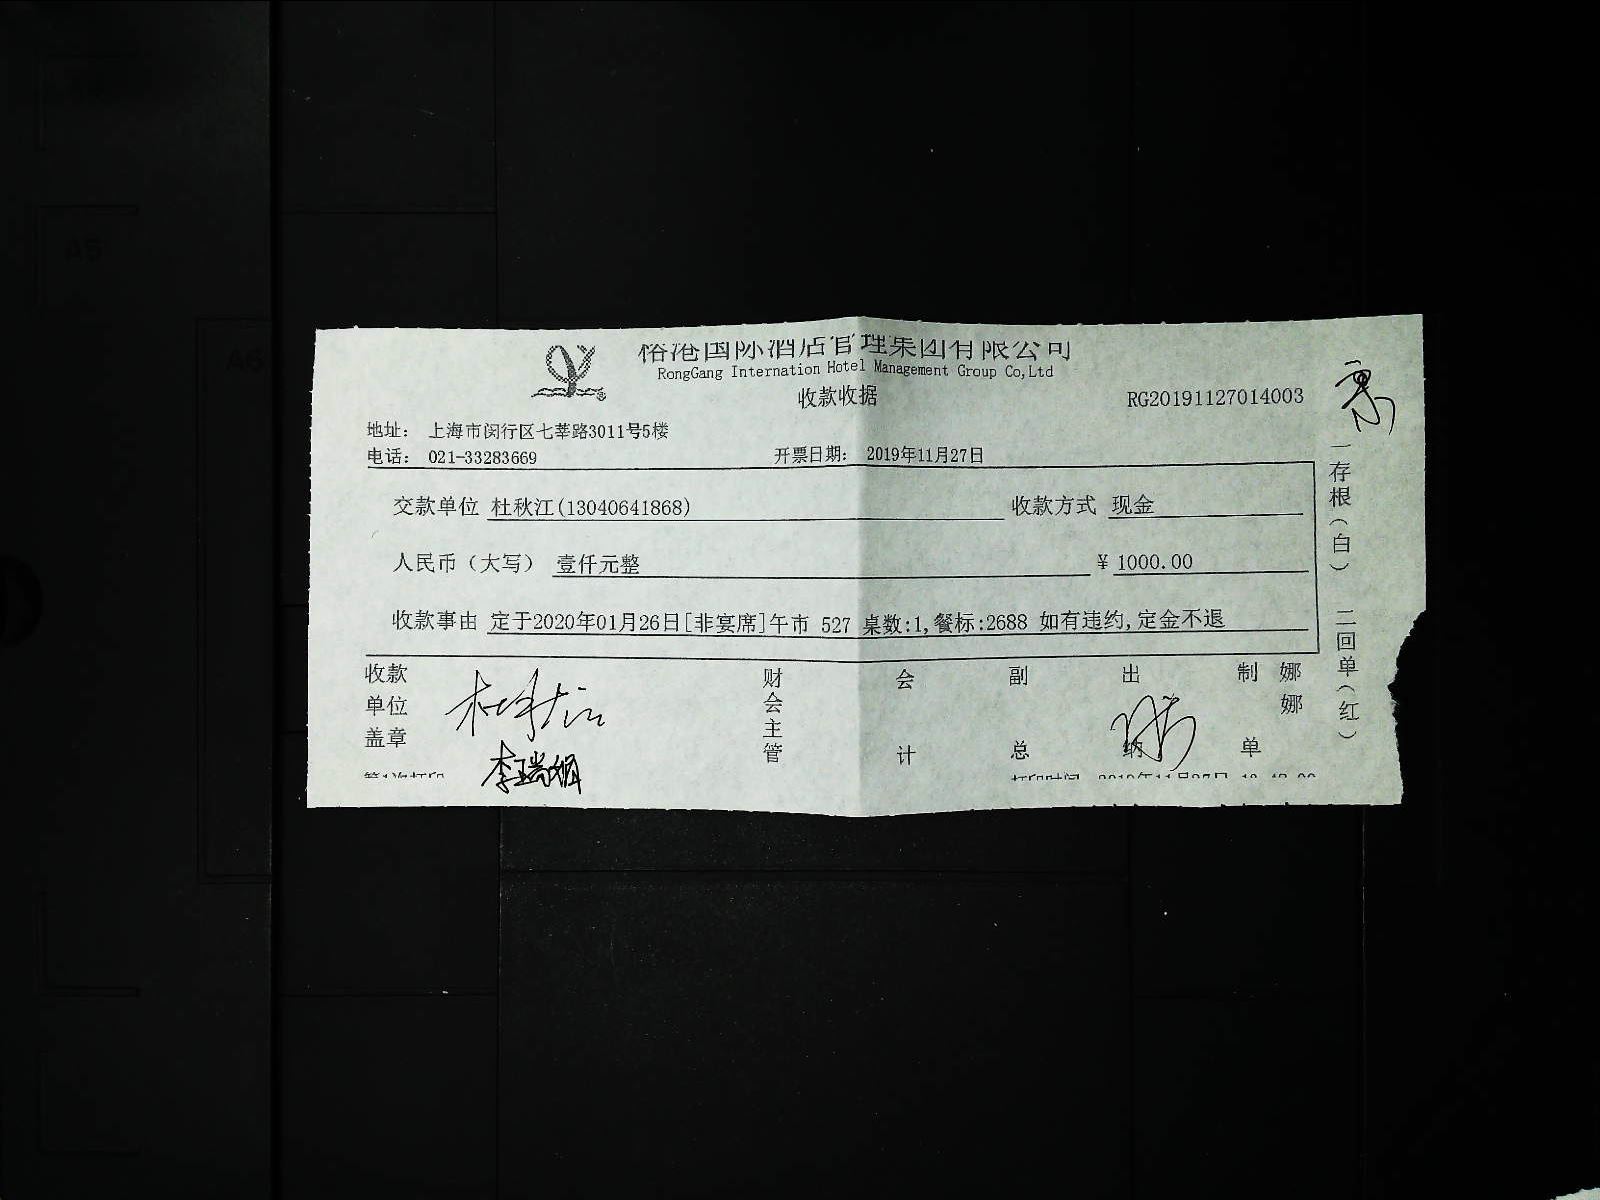 榕港国际酒店管理集团有限公司
RongGang Internation Hotel Management Group Co,Ltd
收款收据
RG20191127014003
地址： 上海市闵行区七莘路3011号5楼
电话： 021-33283669 开票日期： 2019年11月27日
交款单位 杜秋江(13040641868) 收款方式 现金
人民币（大写） 壹仟元整 ￥1000.00
收款事由 定于2020年01月26日[非宴席]午市 527 桌数:1,餐标:2688 如有违约,定金不退
收款单位盖章 杜秋江
财会主管
会计
副总
出纳
制单
娜娜
第1次打印
打印时间 2019年11月27日
一存根（白） 二回单（红）
A5
A6